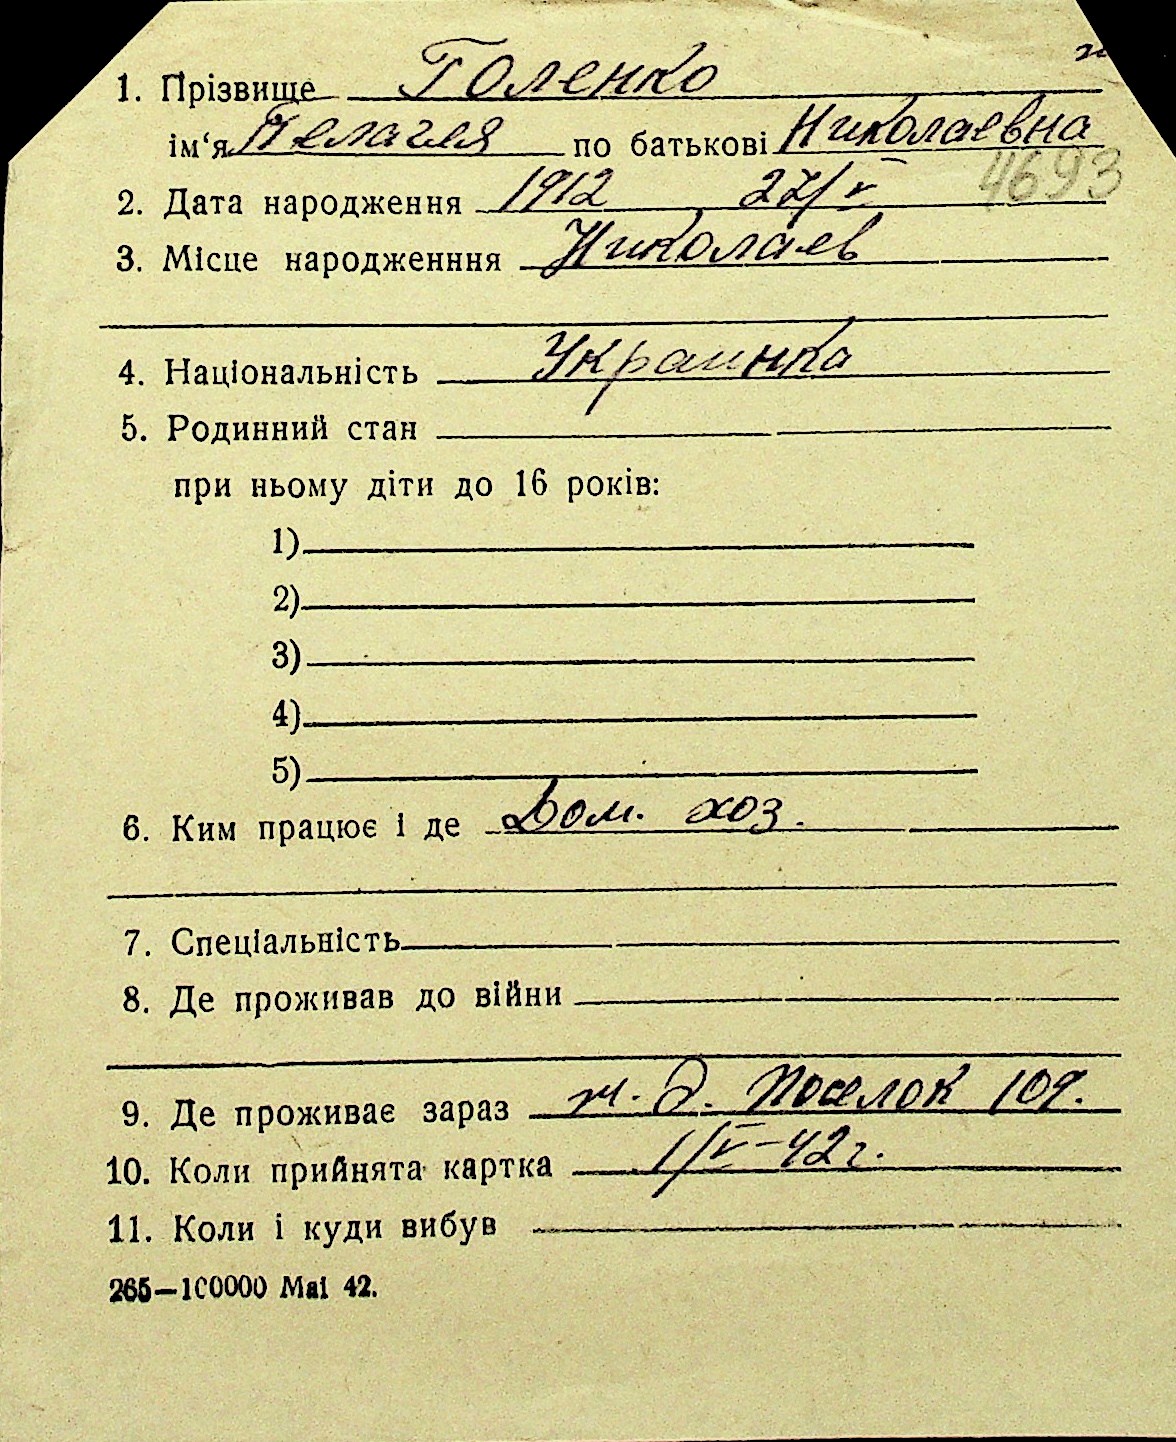 1. Прізвище Голенко
ім‘я Пелагея по батькові Николаевна
4693
2. Дата народження 1912 27/V
3. Місце народженння Николаев
4. Національність Украинка
5. Родинний стан
при ньому діти до 16 років:
1)
2)
3)
4)
5)
6. Ким працює і де Дом. хоз.
7. Спеціальність
8. Де проживав до війни
9. Де проживає зараз ж. д. поселок 109.
10. Коли прийнята картка 1/V-42 г.
11. Коли і куди вибув
265—100000 Mai 42.